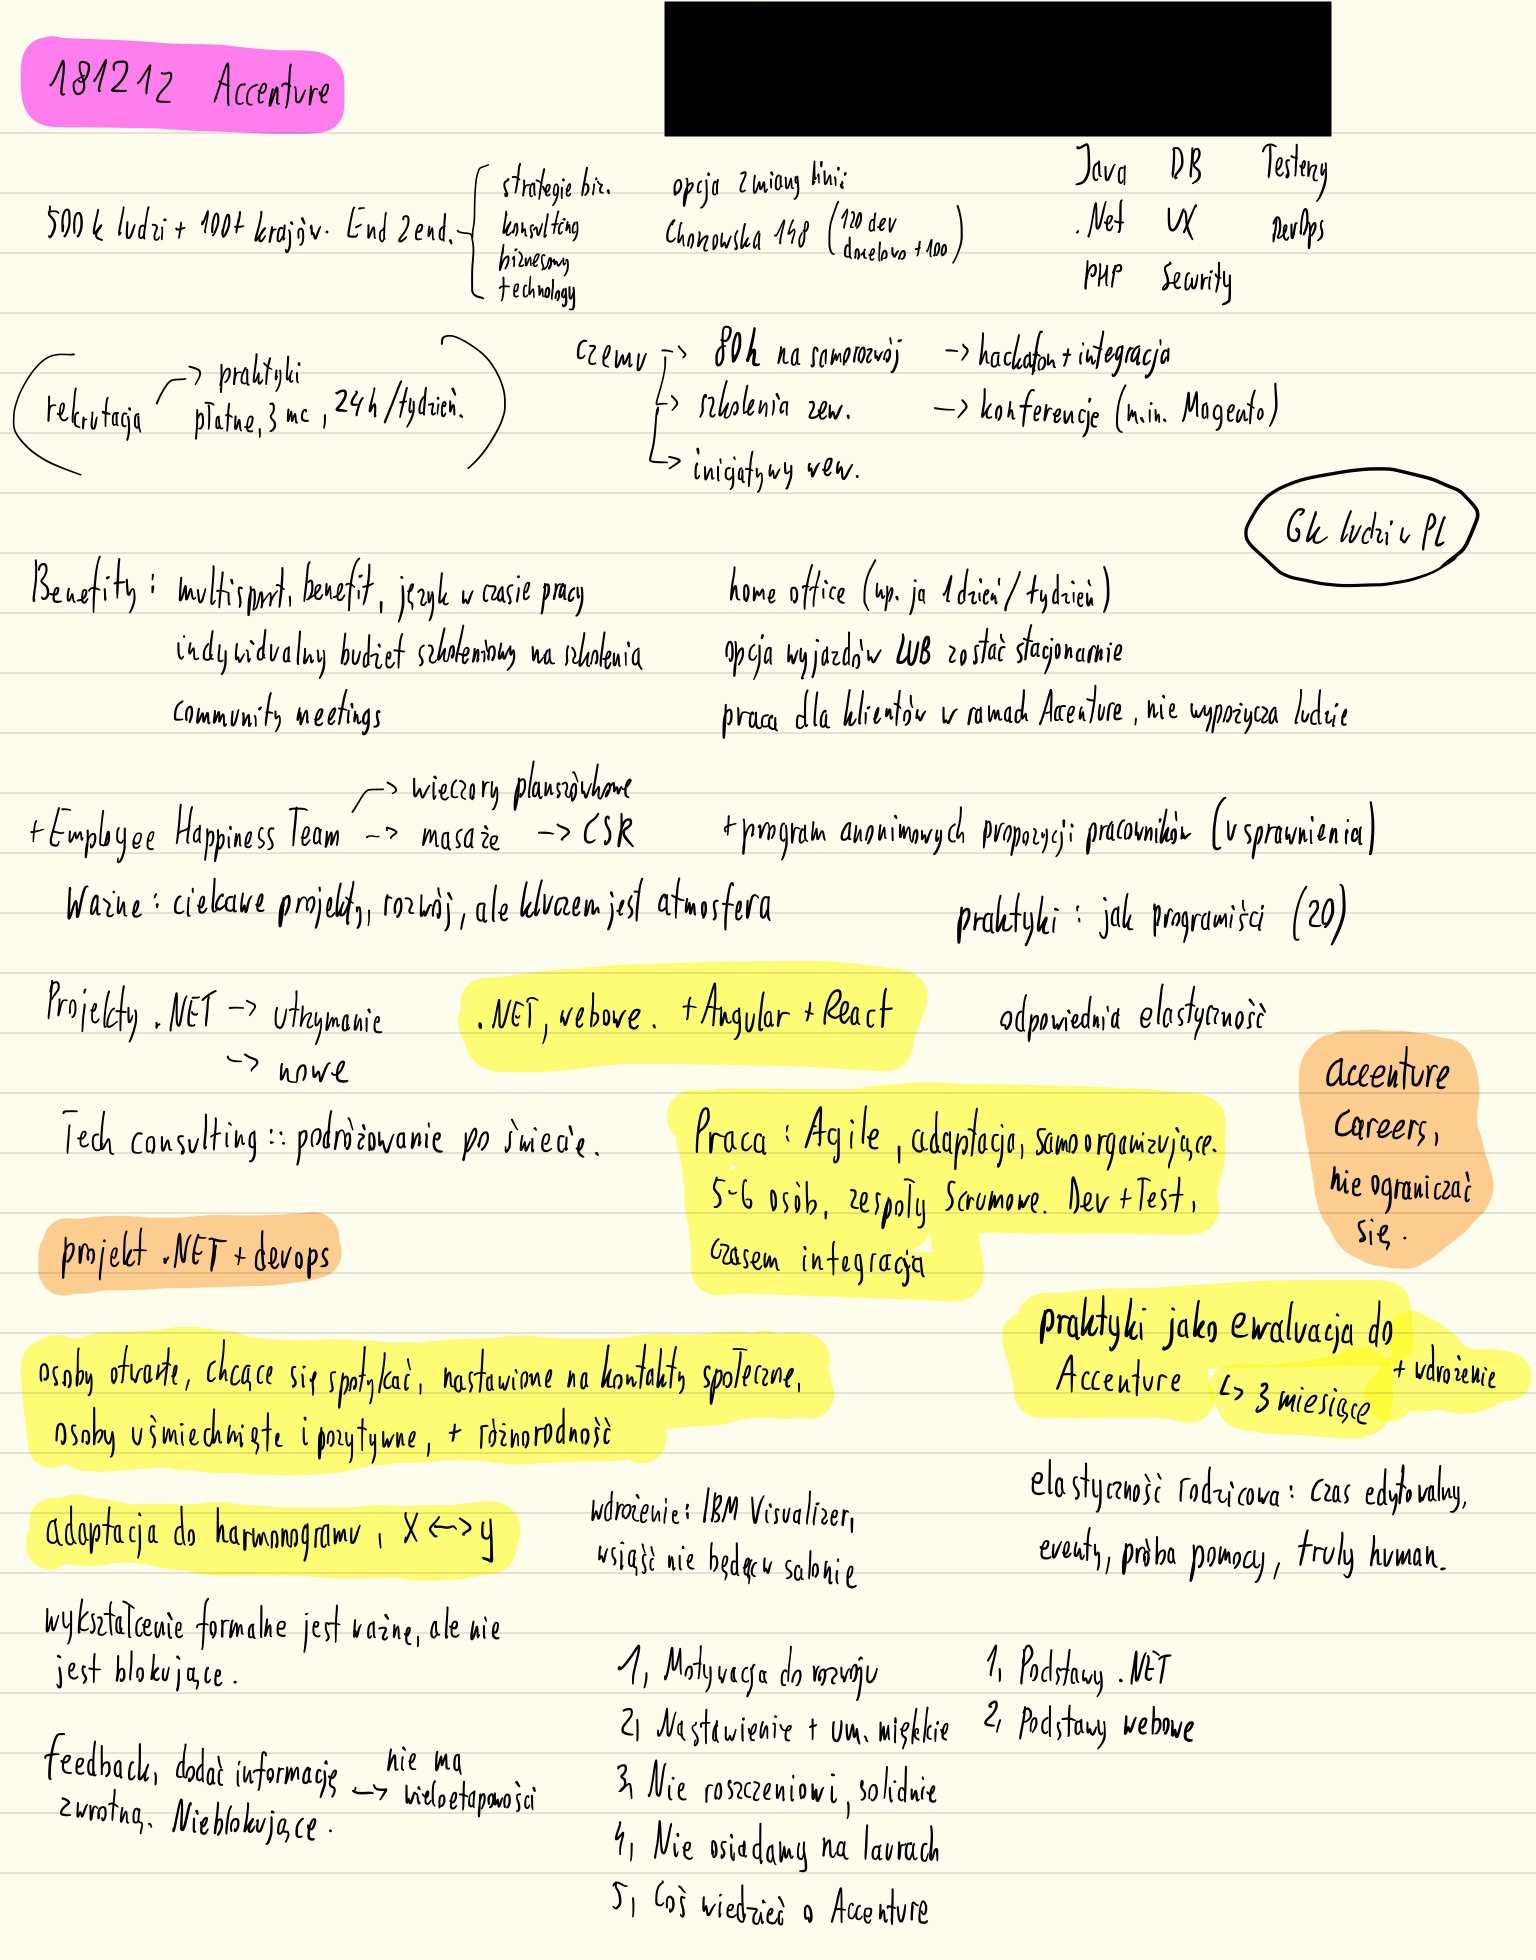 181212 Accenture
500k ludzi + 100+ krajów. End 2 end.
strategie biz.
konsulting
biznesowy
technology
opcja zmiany linii
Chorzowska 148 (120 dev
docelowo +100)
Java DB Testerzy
.Net UX DevOps
PHP Security
rekrutacja -> praktyki
płatne, 3 mc, 24h/tydzień.
czemu -> 80h na samorozwój -> hackaton + integracja
-> szkolenia zew. -> konferencje (m.in. Magento)
-> inicjatywy wew.
6k ludzi w PL
Benefity: multisport, benefit, język w czasie pracy
indywidualny budżet szkoleniowy na szkolenia
community meetings
home office (np. ja 1 dzień/tydzień)
opcja wyjazdów LUB zostać stacjonarnie
praca dla klientów w ramach Accenture, nie wypożycza ludzie
+ Employee Happiness Team -> wieczory planszówkowe
-> masaże -> CSR
+ program anonimowych propozycji pracowników (usprawnienia)
Ważne: ciekawe projekty, rozwój, ale kluczem jest atmosfera
praktyki: jak programiści (20)
Projekty .NET -> utrzymanie
-> nowe
.NET, webowe. + Angular + React
odpowiednia elastyczność
Tech consulting :: podróżowanie po świecie.
Praca: Agile, adaptacja, samoorganizujące.
5-6 osób, zespoły Scrumowe. Dev + Test,
czasem integracja
accenture
Careers,
nie ograniczać
się.
projekt .NET + devops
praktyki jako ewaluacja do
Accenture ↳ 3 miesiące + wdrożenie
osoby otwarte, chcące się spotykać, nastawione na kontakty społeczne,
osoby uśmiechnięte i pozytywne, + różnorodność
adaptacja do harmonogramu, X <-> y
wdrożenie: IBM Visualizer,
wsiąść nie będąc w salonie
elastyczność rodzicowa: czas edytowalny,
eventy, próba pomocy, truly human.
wykształcenie formalne jest ważne, ale nie
jest blokujące.
feedback, dodać informację
zwrotną. Nieblokujące.
-> nie ma
wieloetapowości
1, Motywacja do rozwoju
2, Nastawienie + um. miękkie
3, Nie roszczeniowi, solidnie
4, Nie osiadamy na laurach
5, Coś wiedzieć o Accenture
1, Podstawy .NET
2, Podstawy webowe